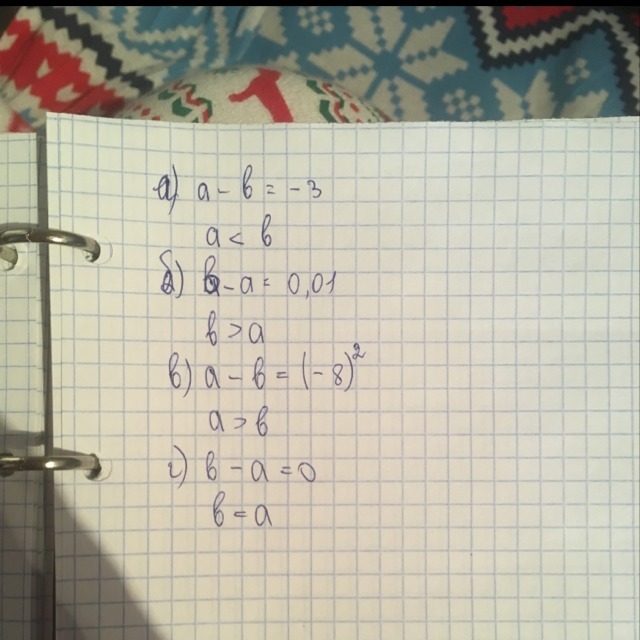 а) a - b = -3
a < b
б) b - a = 0,01
b > a
в) a - b = (-8)²
a > b
г) b - a = 0
b = a